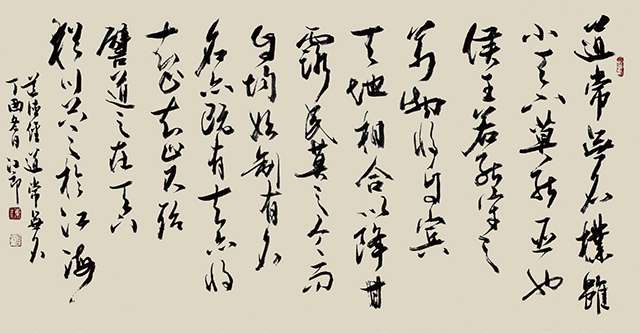 道常無名樸雖
小天下莫能臣也
侯王若能守之
萬物将自賓
天地相合以降甘
露民莫之令而
自均始制有名
名亦既有夫亦将
知止知止不殆
譬道之在天下
猶川谷之於江海
道德經道常無名
丁酉